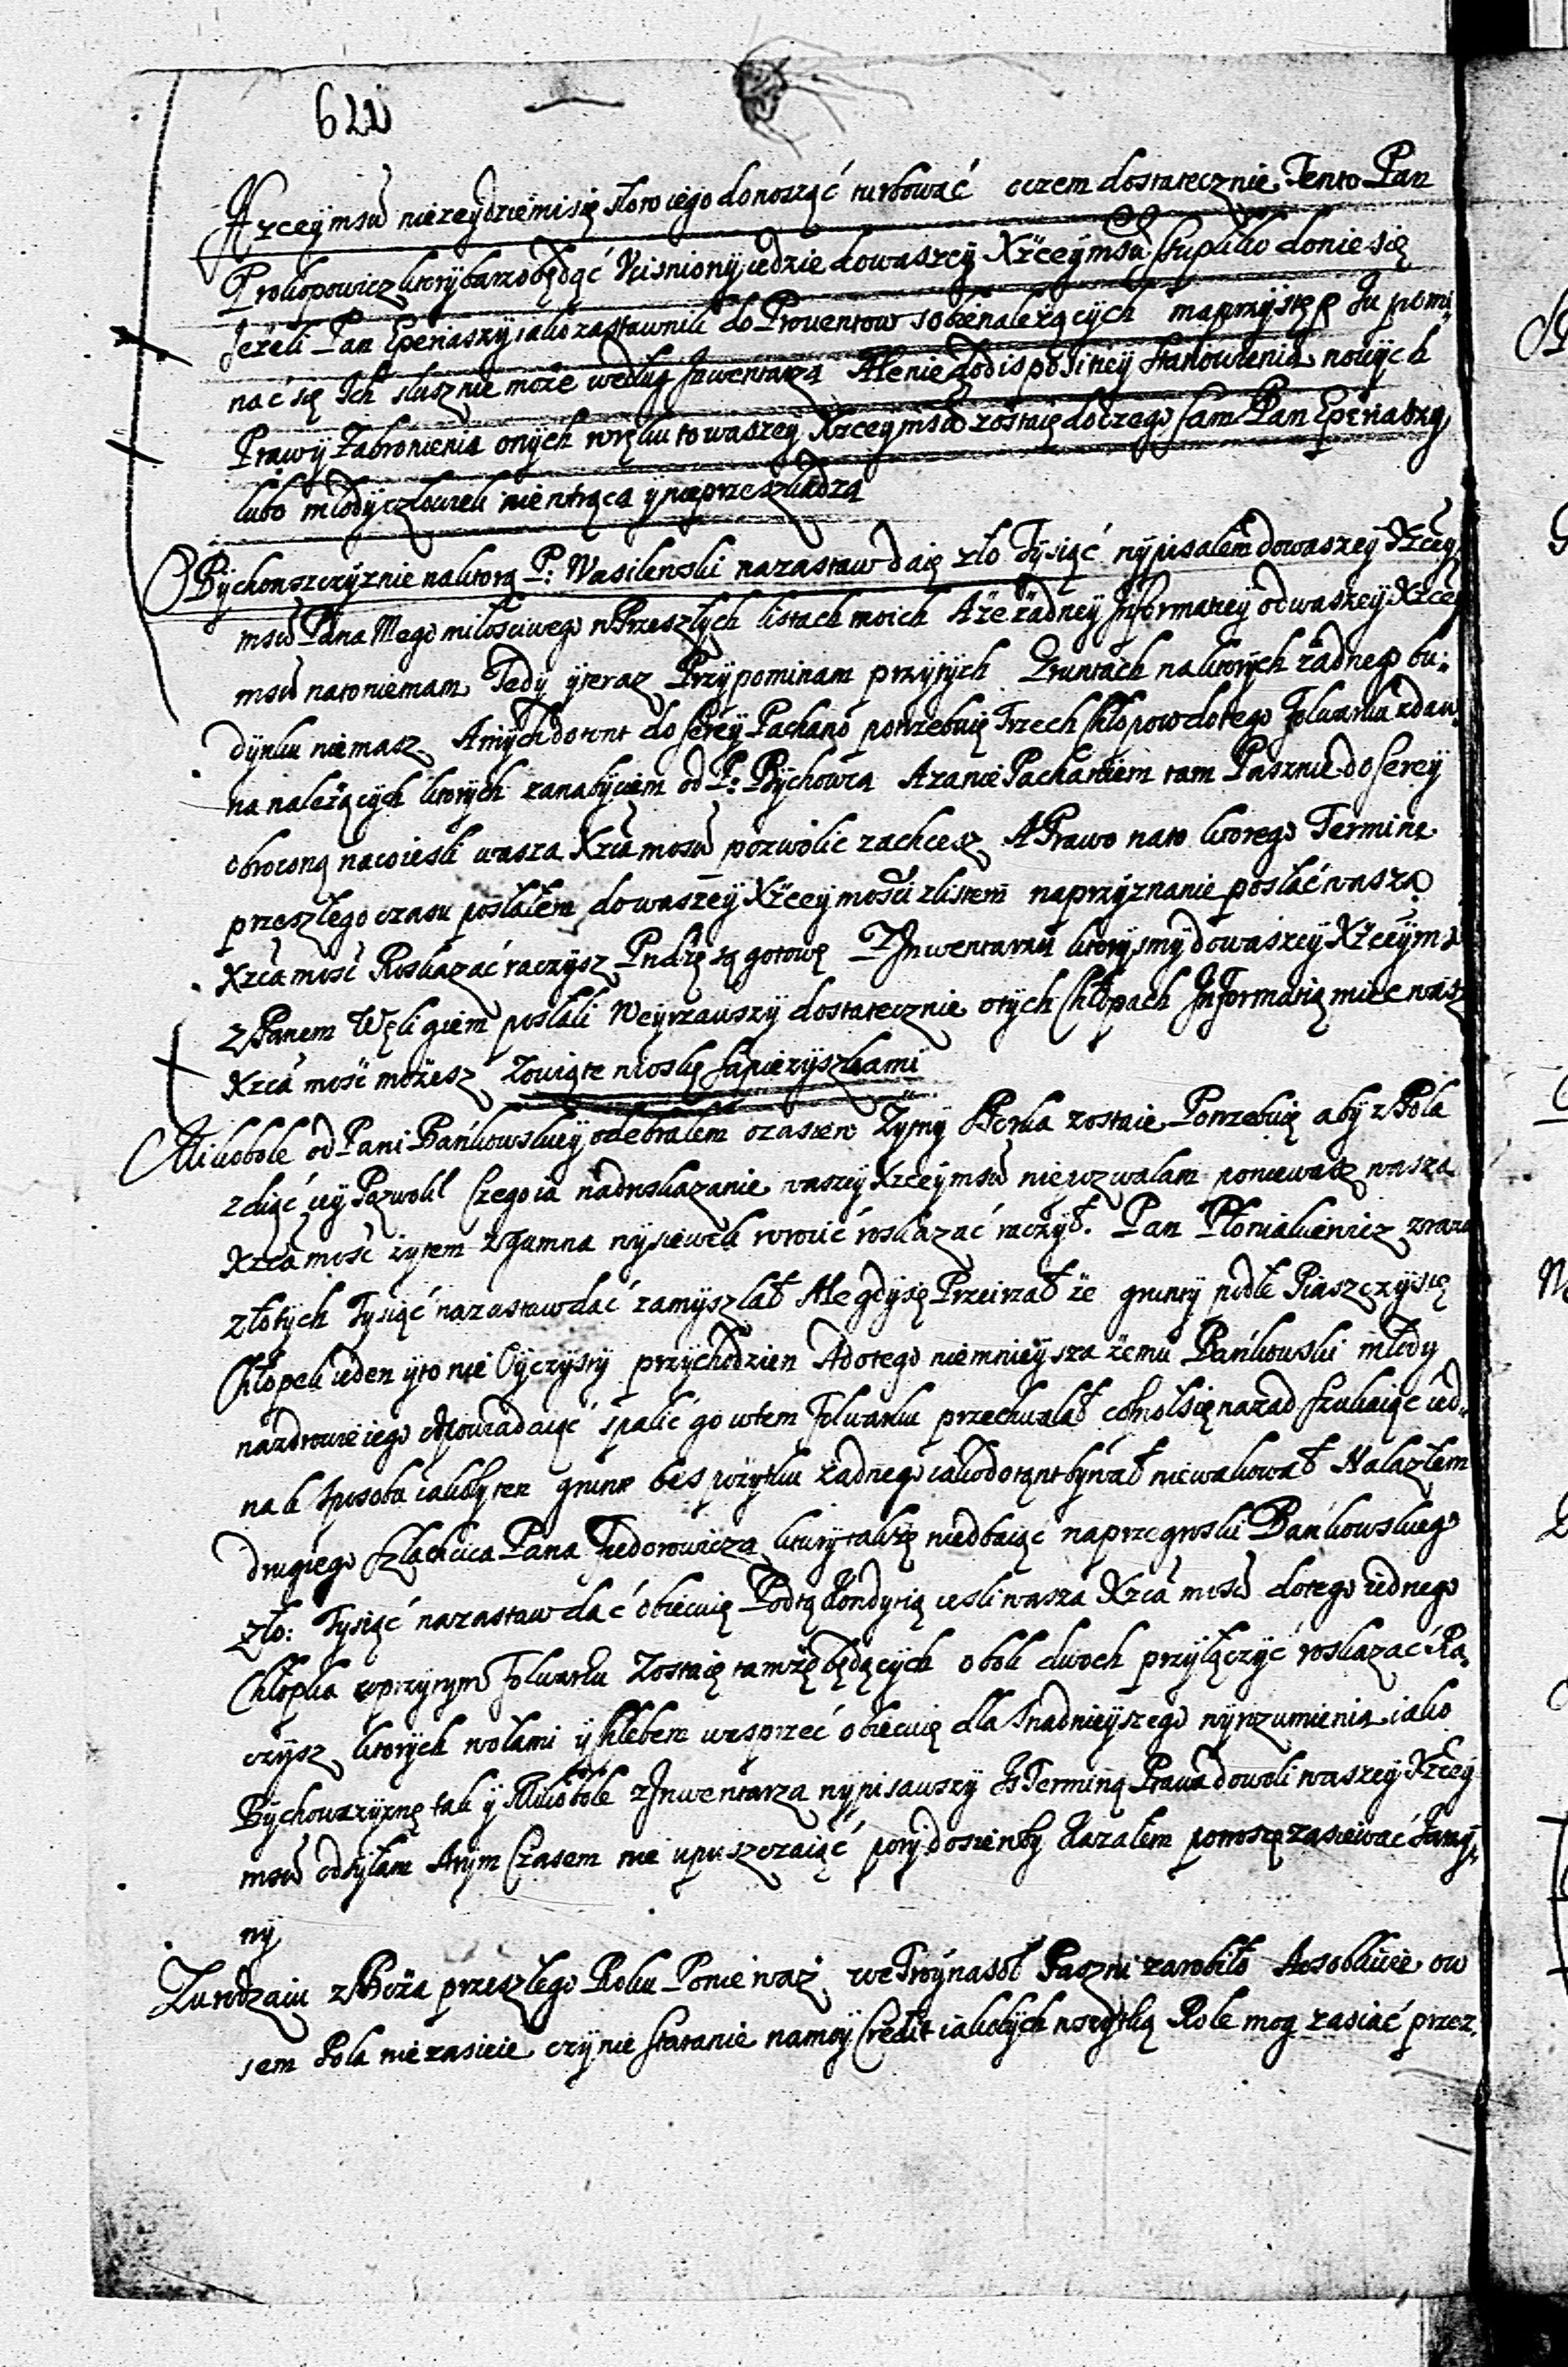 622
Xrceymsw niezeydziemisię słow iego donosząć turbować oczem dostatecznie Tento Pan
Prokopowicz ktory barzo będąć Vcisniony iedzie dowaszey Xżceymsw supliko doniesię
Jeżeli Pan Eperiaszy iako zastawnik do Prouentow sobie należących ma przystęp Ju pomi
nać się Ich słusznie może według Inwentarza Ale nie do disposiney stanowienia nowych
Prawy Zabronienia onych w ręku to waszey Xrceymsw zostaię do czego sam Pan Eperiaszy
lubo młody człowiek nie wtrąca y nieprzeszkadza
O Bychowszczyznie naktorą P: Wasilewski nazastaw daię zło Tysiąć wypisałem dowaszey Xżcey
msw Pana Mego miłosciwego w Przeszłych listach moich A że żadney Informatiey odwaszey Xżcey
msw nato niemam Tedy y teraz Przypominam przy tych Gruntach naktorych żadnego bu:
dynku niemasz A mych dotont do serey Pachano potrzebuię Trzech chłopow dotego Folwarku zdaw
na należących ktorych zanabyciem od P: Bychowca A zanie Pachaniem tam Pasznie do serey
obroconą nacoiesli wasza Xżca mosw pozwolic zachcesz A Prawo nato ktorego Terminę
przeszłego czasu posłałem dowaszey Xżcey mosci zlistem naprzyznanie posłać wasza
Xżca mosć Roskazać raczysz Pndzę są gotowę Z Inwentarzu ktory smy dowaszey Xżceyms
z Panem Węligiem posłali Weyrzawszy dostatecznie o tych chłopach Informatią miec wasz
Xżca mosć możesz Zowią te wioskę sapieżyszkami
Mikobole od Pani Bańkowskiey odebrałem ozasiew Żytny Ktorka zostaie Potrzebuię aby z Pola
zdiąć iey Pozwolił czego ia nadroskazanie waszey Xżceymsw niepozwalam poniewasz wasza
Xżca mosć żytem z Gumna wysiewek wrocić roskazać raczył. Pan Płoniakiewicz zrazu
złotych Tysiąć nazastaw dać zamyszlał Ale gdy się Przeirzał że grunty podłe Piaszczystę
Chłopek ieden y to nie Oyczysty przychodzien A do tego niemnieysza że mu Bańkowski młody
nazdrowie iego odpowiadaiąć spalić go w tem Folwarku przechwalał cofnołsię nazad szukaiąc ied
nak sposobu iakoby ten grunt bes pożytku żadnego iako dotąnt bywał niewakował Nalazłem
drugiego szlachcica Pana Fiedorowicza ktury także niedbaiąc naprzegroski Bańkowskiego
zło: Tysiąć nazastaw dać obiecuię Pod tą Kondytią iesli wasza Xżca mosw do tego iednego
Chłopka w przytym Folwarku Zostaię tamże będących obok dwoch przyłączyć roskazać Ra
czysz ktorych wołami y chlebem wesprzeć obiecuię dla snadnieyszego wyrozumienia iako
Bychowszyznę tak y Mikobole z Inwentarza wypisawszy Js Terminą Prawa dowoli waszey Xżcey
msw odsyłam A tym Czasem nie upuszczaiąć pory dosiewby Kazałem pomosęzasiewać Jamy
ny
Zurodzaiu zBoża przeszłego Roku Ponieważ we Troynasob Paszni zarobiło A osobliwie ow
sem Pola nie zasieie czynie staranie namoy Credit iakobych wszytką Role mog zasiać przez